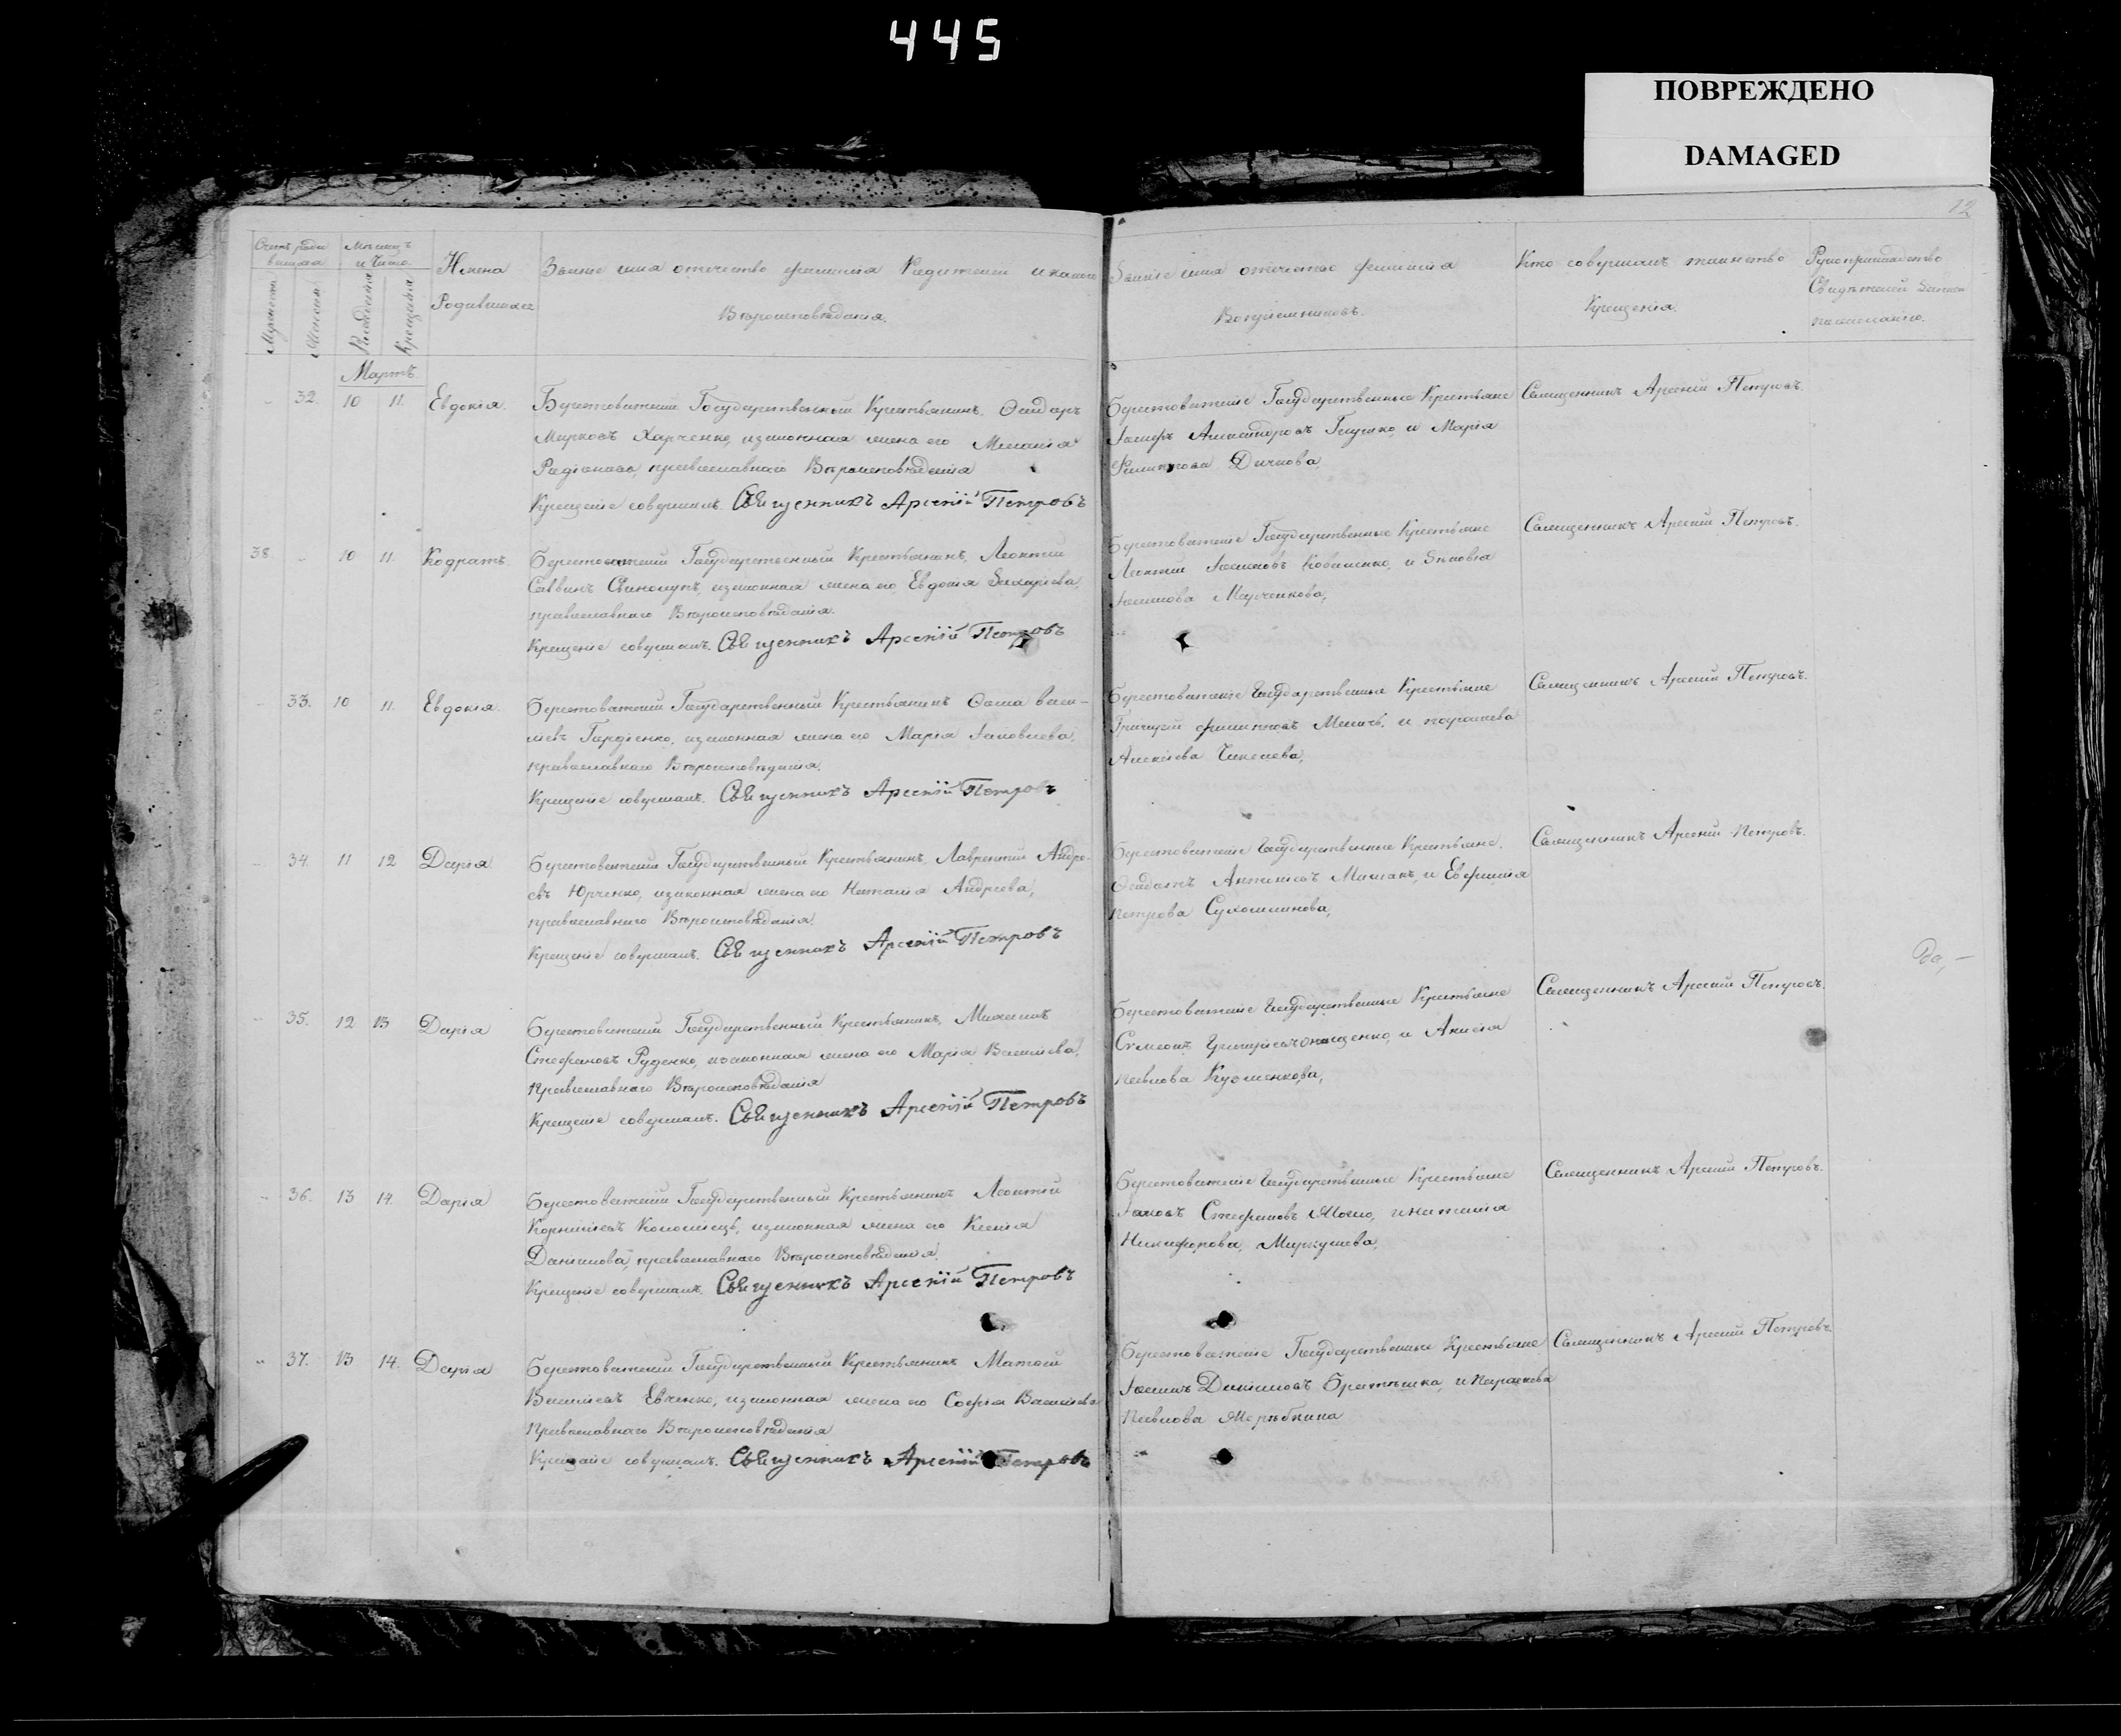 445
ПОВРЕЖДЕНО
DAMAGED
12
Счетъ роди
вшихся
Мѣсяцъ
и Число.
Имена
Родившихся
Званіе имя отечество фамилія Родителей и какого
Вѣроисповѣданія.
Званіе имя отечество фамилія
Воспріемниковъ.
Кто совершалъ таинство
Крещенія.
Рукоприкладство
Свидѣтелей записи
по желанію.
Мужеска
Женска
Рожденія
Крещенія
Мартъ.
32. 10 11. Евдокія.
Берестоватскій Государственный Крестьянинъ, Исидоръ
Марковъ Харченко, изаконная жена его Меланія
Родіонова, православнаго Вѣроисповѣданія
Крещеніе совершилъ. Священникъ Арсеній Петровъ
Берестоватскіе Государственные Крестьяне
Іосифъ Александровъ Глушко, и Марія
Филиппова Дичкова,
Священникъ Арсеній Петровъ.
38. 10 11. Кодратъ.
Берестоватскій Государственный Крестьянинъ, Леонтій
Саввинъ Свинолупъ, изаконная жена его Евдокія Захаріева,
православнаго Вѣроисповѣданія.
Крещеніе совершалъ. Священникъ Арсеній Петровъ
Берестоватскіе Государственные Крестьяне
Леонтій Іоанновъ Коваленко, и Зѣновія
Іоаннова Марченкова,
Священникъ Арсеній Петровъ.
33. 10 11. Евдокія.
Берестоватскій Государственный Крестьянинъ Фома Васи-
ліевъ Гордіенко, изаконная жена его Марія Іаковлева,
православнаго Вѣроисповѣданія.
Крещеніе совершалъ. Священникъ Арсеній Петровъ
Берестоватскіе Государственные Крестьяне
Григорій Филипповъ и параскева
Алексіева
Священникъ Арсеній Петровъ.
34. 11 12 Дарія
Берестоватскій Государственный Крестьянинъ, Лаврентій Андре-
евъ Юрченко, изаконная жена его Наталія Андреева,
православнаго Вѣроисповѣданія.
Крещеніе совершалъ. Священникъ Арсеній Петровъ
Берестоватскіе Государственные Крестьяне,
Антоніевъ и Евфимія
Петрова Сухомлинова,
Священникъ Арсеній Петровъ.
35. 12 13 Дарія
Берестоватскій Государственный Крестьянинъ, Михаилъ
Стефановъ Руденко, изаконная жена его Марія Василіева,
Православнаго Вѣроисповѣданія
Крещеніе совершалъ. Священникъ Арсеній Петровъ
Берестоватскіе Государственные Крестьяне
Симеонъ Григоріевъ Онищенко, и Анисія
Павлова Кузменкова,
Священникъ Арсеній Петровъ.
36. 13 14. Дарія
Берестоватскій Государственный Крестьянинъ Леонтій
Корниліевъ Коломіецъ, изаконная жена его Ксенія
Даніилова, православнаго Вѣроисповѣданія.
Крещеніе совершалъ. Священникъ Арсеній Петровъ
Берестоватскіе Государственные Крестьяне
Іаковъ Стефановъ и Наталія
Никифорова,
Священникъ Арсеній Петровъ.
37. 13 14. Дарія
Берестоватскій Государственный Крестьянинъ Матвій
Василіевъ Евченко, изаконная жена его Софія Василіева
Православнаго Вѣроисповѣданія
Крещеніе совершалъ. Священникъ Арсеній Петровъ
Берестоватскіе Государственные Крестьяне
Іоаннъ Даніиловъ и Параскева
Павлова
Священникъ Арсеній Петровъ.